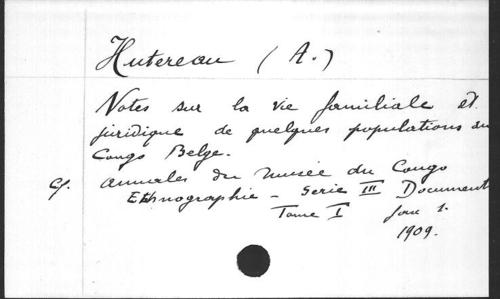 Hutereau (A.)
Notes sur la vie familiale et
juridique de quelques populations du
Congo Belge.
cf. annales du musée du Congo
Ethnographie - Serie III Document
Tome I fasc 1.
1909.